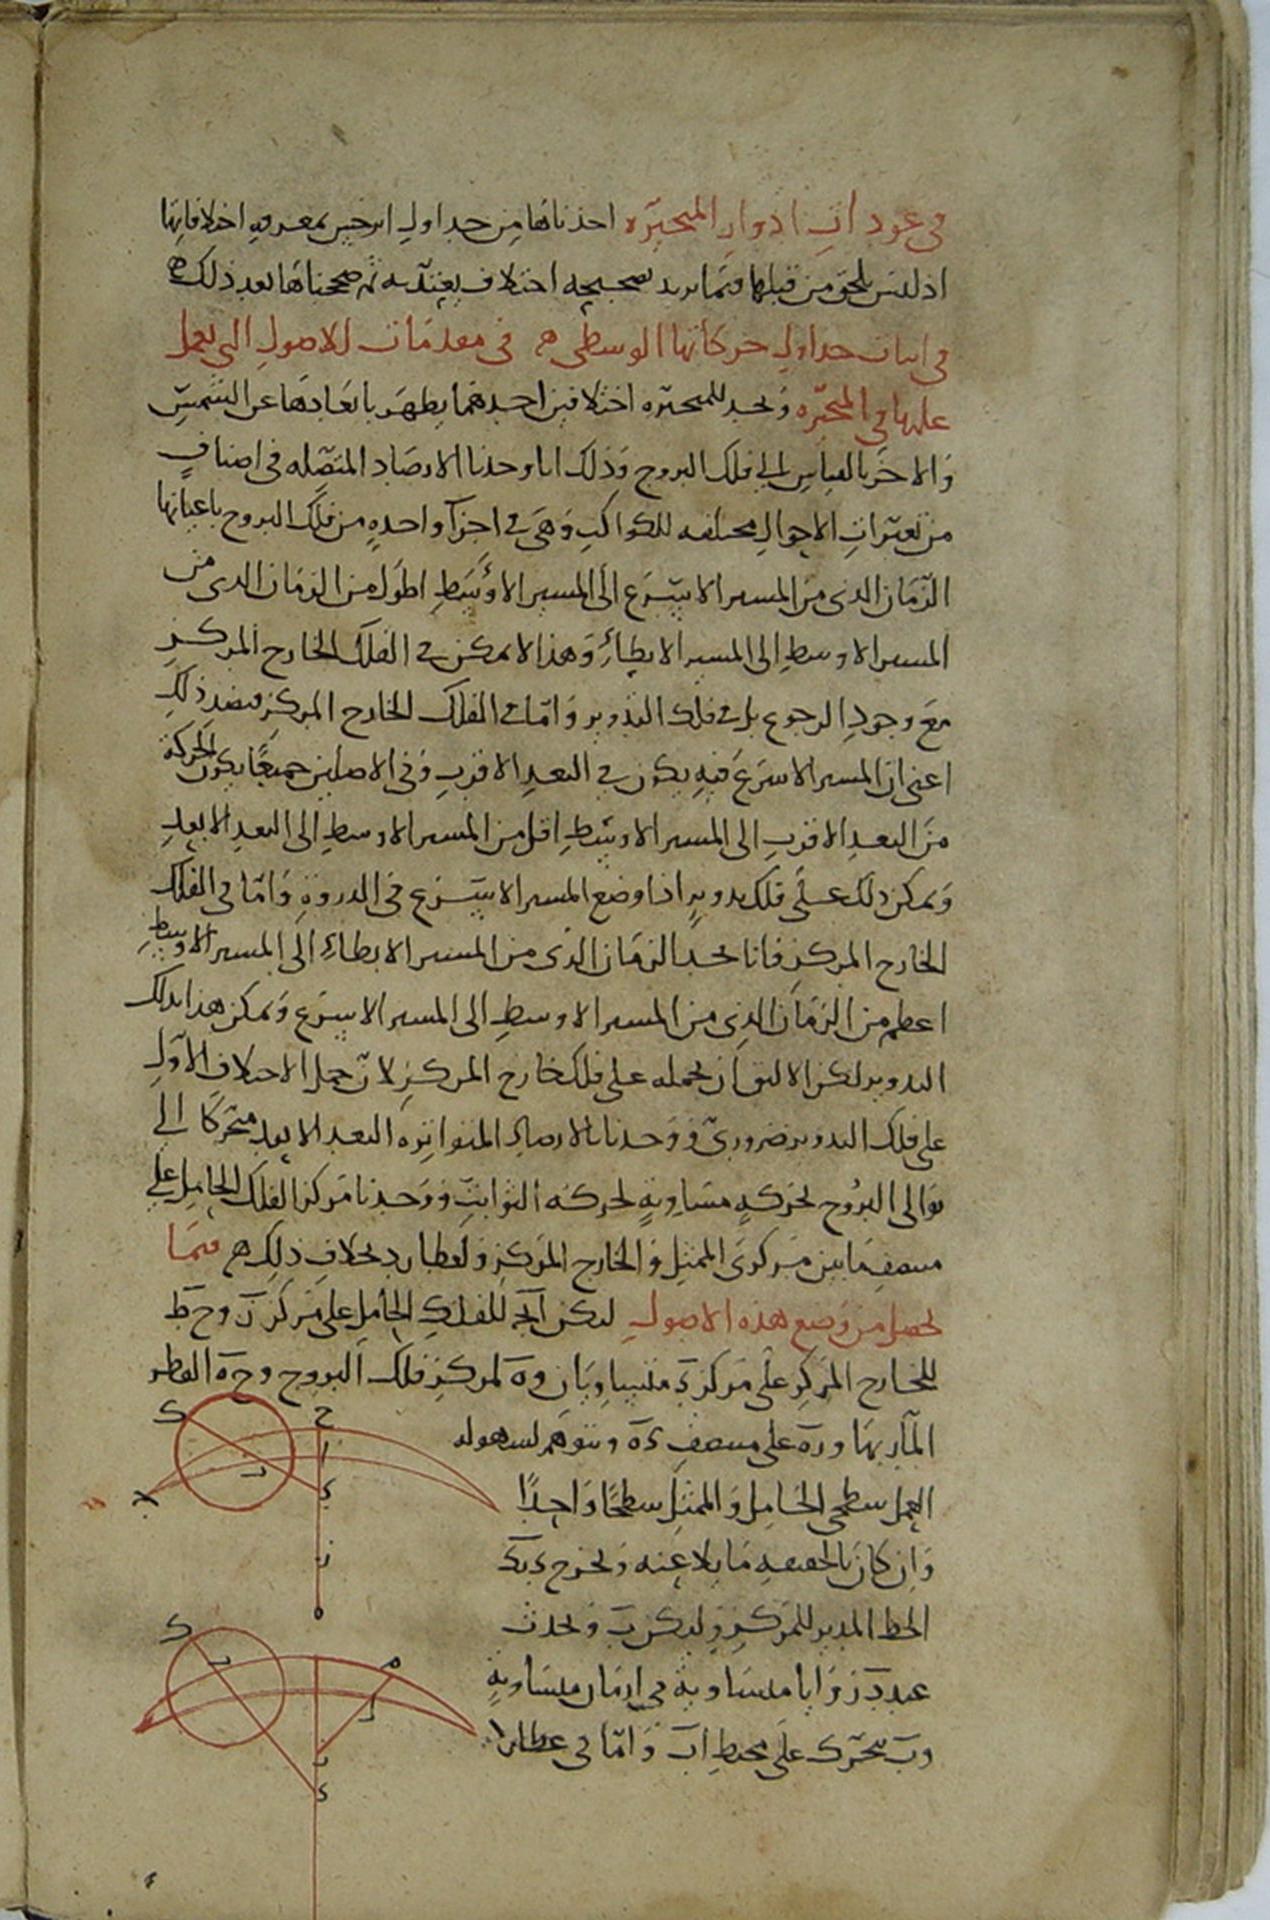 في عودات ادوار المتحيّره اخذناها من جداول ابرخس بمعرفه اختلافاتها
اذ ليس يلحق من قبلها فيما نريد تصحيحه اختلاف يعتدّ به ثم صححناها بعد ذلك ه
في اثبات جداول حركاتها الوسطى ه في مقدمات للاصول التي يعمل
عليها في المتحيّره ونجد للمتحيّره اختلافين احدهما يظهر بابعادها عن الشمس
والاخر بالقياس الى فلك البروج وذلك انا وجدنا الارصاد المتصله في اصناف
من تغيرات الاحوال مختلفه للكواكب وهي في اجزآ واحدهٍ من فلك البروج باعيانها
الزمان الذي من المسير الاسرع الى المسير الاوسط اطول من الزمان الذي من
المسير الاوسط الى المسير الابطاء وهذا لا يمكن في الفلك الخارج المركز
مع وجود الرجوع بل في فلك التدوير وامّا في الفلك الخارج المركز فبضد ذلك
اعني ان المسير الاسرع فيه يكون في البعد الاقرب وفي الاصلين جميعًا يكون الحركة
من البعد الاقرب الى المسير الاوسط اقل من المسير الاوسط الى البعد الابعد
ويمكن ذلك على فلك تدوير اذا وضع المسير الاسرع في الذروة وامّا في الفلك
الخارج المركز فانا نجد الزمان الذي من المسير الابطاء الى المسير الاوسط
اعظم من الزمان الذي من المسير الاوسط الى المسير الاسرع ويمكن هذا بفلك
التدوير لكن الاليق ان نحمله على فلك خارج المركز لانّ حمل الاختلاف الاول
على فلك التدوير ضروريّ ووجدنا بالارصاد المتواتره البعد الابعد متحركًا الى
توالى البروج بحركهٍ مساويةٍ لحركه الثوابت ووجدنا مركز الفلك الحامل على
منصف ما بين مركزي الممثل والخارج المركز ولعطارد بخلاف ذلك ه فيما
يحصل من وضع هذه الاصول ليكن اٮج للفلك الحامل على مركز ز وح ط
للخارج المركز على مركز د متساويان وه لمركز فلك البروج وح ه القطر
المآر بها وز على منصف ده ونتوهم لسهوله
العمل سطحى الحامل والممثل سطحًا واحدًا
وان كان بالحقيقه مايلا عنه ونخرج دبك
الخط المدير للمركز وليكن ب ويحدث
عند د زوايا متساوية في ازمان متساويةٍ
وب يتحرك على محيط اب وامّا في عطارد
ك
ح
ا
ب
د
ط
ز
ه
ك
ب
ه
ل
ز
د